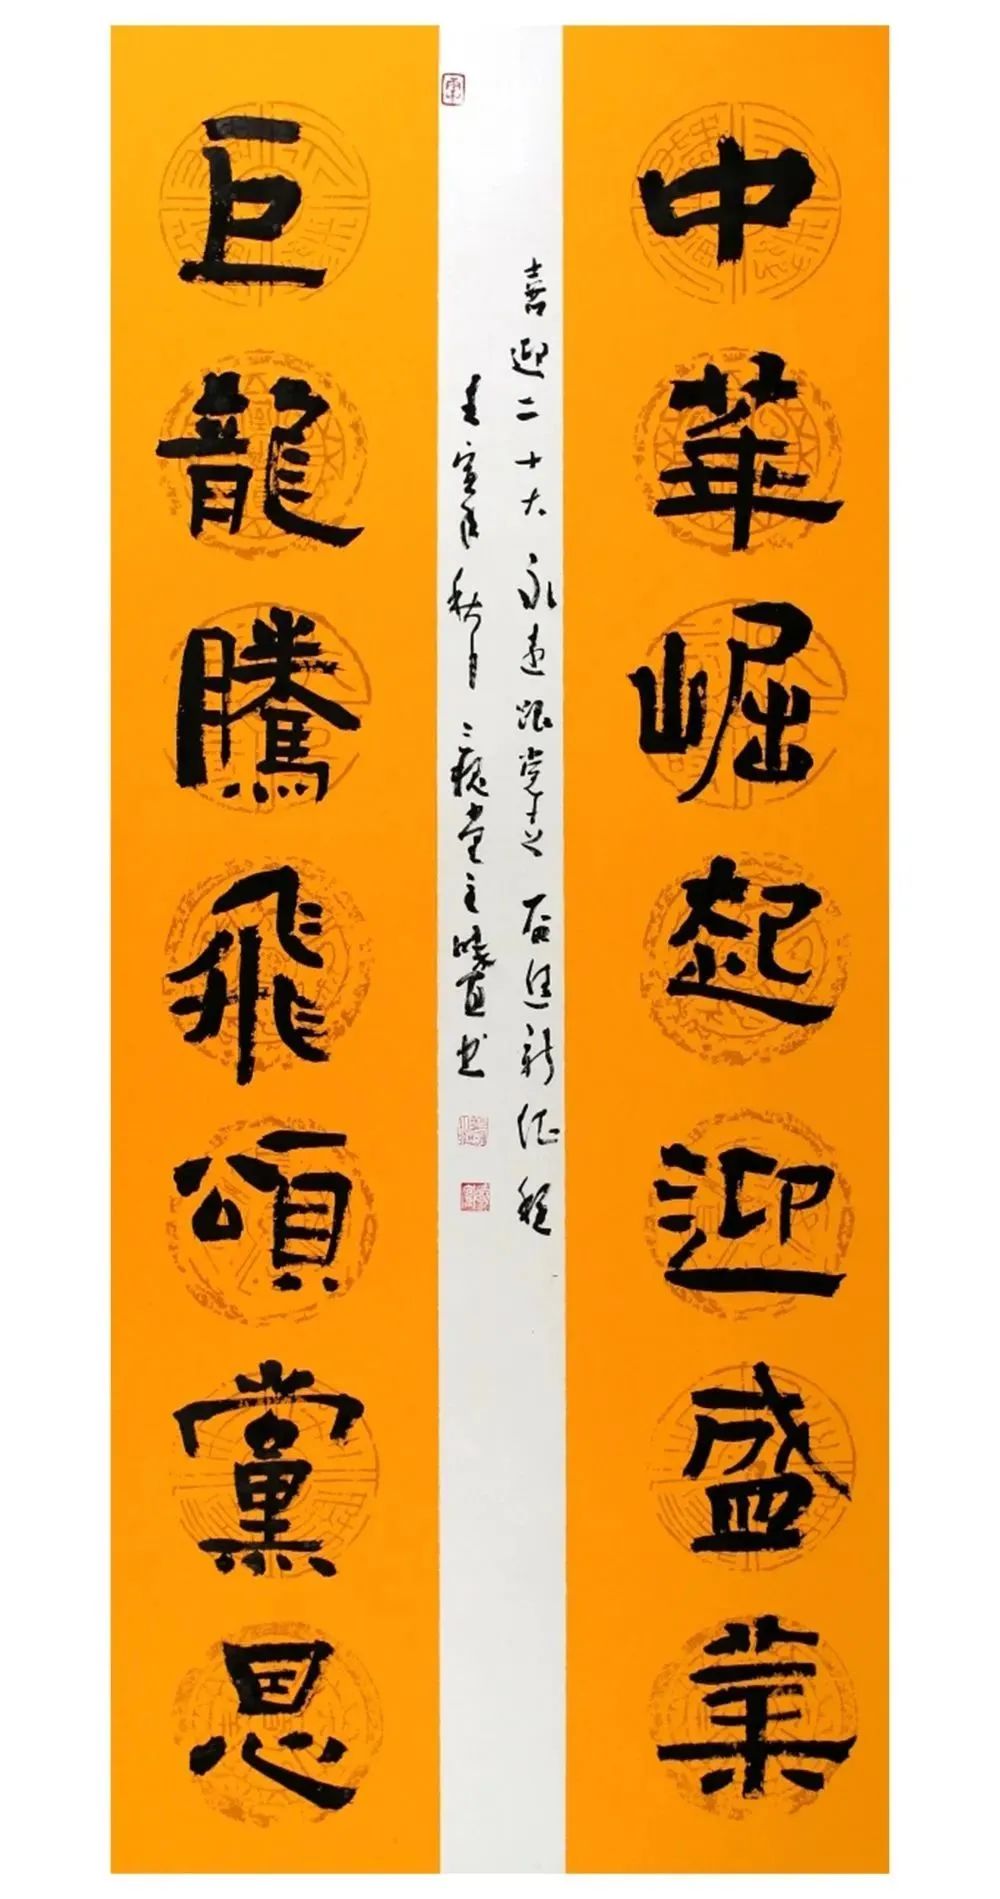 中華崛起迎盛業
巨龍騰飛頌黨恩
喜迎二十大永远跟党走奋进新征程
壬寅年秋月堂主书